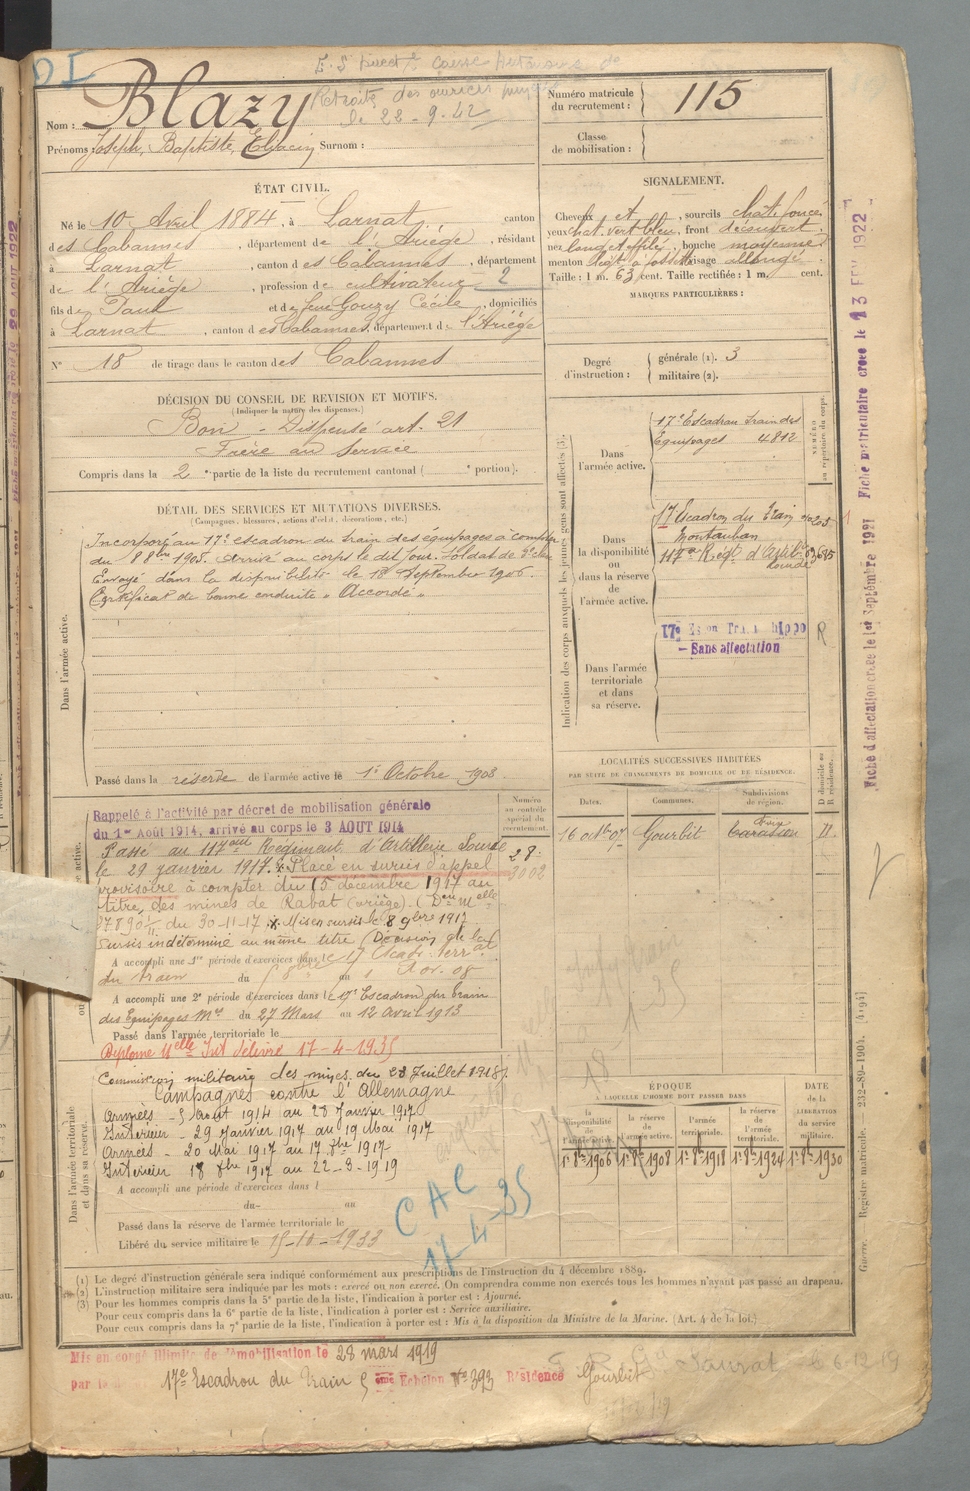 Blazy
Retraite des ouvriers
le 22-9-42
Nom :
Prénoms : Joseph, Baptiste, Surnom :
Numéro matricule du recrutement : 115
Classe de mobilisation :
ÉTAT CIVIL.
Né le 10 Avril 1884, à Larnat, canton
des Cabannes, département de l'Ariège, résidant
à Larnat, canton des Cabannes, département
de l'Ariège, profession de cultivateur 2
fils de Paul et de feue Gouzy Cécile, domiciliés
à Larnat, canton des Cabannes, département de l'Ariège
N° 18 de tirage dans le canton des Cabannes
SIGNALEMENT.
Cheveux et, sourcils chât. foncé
yeux chat. vert bleu, front découvert
nez long et effilé, bouche moyenne
menton visage allongé
Taille : 1 m. 63 cent. Taille rectifiée : 1 m. cent.
MARQUES PARTICULIÈRES :
Degré d'instruction : générale (1). 3
militaire (2).
DÉCISION DU CONSEIL DE REVISION ET MOTIFS.
(Indiquer la nature des dispenses.)
Bon - Dispensé art. 21
Frère au Service
Compris dans la 2e partie de la liste du recrutement cantonal ( e portion).
DÉTAIL DES SERVICES ET MUTATIONS DIVERSES.
(Campagnes, blessures, actions d'éclat, décorations, etc.)
Dans l'armée active.
Incorporé au 17e escadron du train des équipages à compter
du 8 8bre 1905. Arrivé au corps le dit jour. Soldat de 2e cl.
Envoyé dans la disponibilité le 18 Septembre 1906.
Certificat de bonne conduite « Accordé »
Passé dans la réserve de l'armée active le 1er Octobre 1908.
Indication des corps auxquels les jeunes gens sont affectés (3).
NUMÉRO au répertoire du corps.
Dans l'armée active.
17e Escadron Train des
Equipages 4812
Dans la disponibilité ou dans la réserve de l'armée active.
17 Escadron du Train
Montauban
117e Régt d'Artie
lourde
Dans l'armée territoriale et dans sa réserve.
17e
- Sans affectation
R
LOCALITÉS SUCCESSIVES HABITÉES
PAR SUITE DE CHANGEMENTS DE DOMICILE OU DE RÉSIDENCE.
Dates. Communes. Subdivisions de région. D domicile ou R résidence.
16 octbre 07 Gourbit Foix
Tarascon
Numéro au contrôle spécial du recrutement.
Rappelé à l'activité par décret de mobilisation générale
du 1er Août 1914, arrivé au corps le 3 AOUT 1914
Passé au 117eme Régiment d'Artillerie Lourde
le 29 janvier 1917. Placé en sursis d'appel
provisoire à compter du 15 décembre 1917 au
titre des mines de Rabat (Ariège).
du 30-11-17
Sursis indéterminé au même titre
A accompli une 1re période d'exercices dans le 17 Escadr. Terral
du Train du au
A accompli une 2e période d'exercices dans le 17e Escadron du Train
des Equipages Mres du 27 Mars au 12 Avril 1913
Passé dans l'armée territoriale le
Diplome délivré 17-4-1935
Dans l'armée territoriale et dans sa réserve.
Commission militaire des mines du 28 Juillet 1918
Campagnes contre l'Allemagne
Armées - 3 aout 1914 au 28 Janvier 1917
Intérieur - 29 Janvier 1917 au 19 Mai 1917
Armées - 20 Mai 1917 au 17 1917
Intérieur 18 1917 au 22-3-1919
A accompli une période d'exercices dans l
du au
Passé dans la réserve de l'armée territoriale le
Libéré du service militaire le 15-10-1933
CAC
17-4-35
ÉPOQUE
À LAQUELLE L'HOMME DOIT PASSER DANS
la disponibilité de l'armée active. la réserve de l'armée active. l'armée territoriale. la réserve de l'armée territoriale. DATE de la LIBÉRATION du service militaire.
1er 8bre 1906 1er 8bre 1908 1er 8bre 1918 1er 8bre 1924 1er 8bre 1930
(1) Le degré d'instruction générale sera indiqué conformément aux prescriptions de l'instruction du 4 décembre 1889.
(2) L'instruction militaire sera indiquée par les mots : exercé ou non exercé. On comprendra comme non exercés tous les hommes n'ayant pas passé au drapeau.
(3) Pour les hommes compris dans la 5e partie de la liste, l'indication à porter est : Ajourné.
Pour ceux compris dans la 6e partie de la liste, l'indication à porter est : Service auxiliaire.
Pour ceux compris dans la 7e partie de la liste, l'indication à porter est : Mis à la disposition du Ministre de la Marine. (Art. 4 de la loi.)
Mis en congé illimité de démobilisation le 28 mars 1919
par le 17e Escadron du Train 5eme Echelon N° 393 Résidence Gourbit
Saurat le 6-12-19
Fiche d'affectation créée le 1er Septembre 1921 Fiche matriculaire créée le 13 FEV 1922
Guerre. Registre matricule. 232-89-1904. [A 194]
29 AOUT 1922